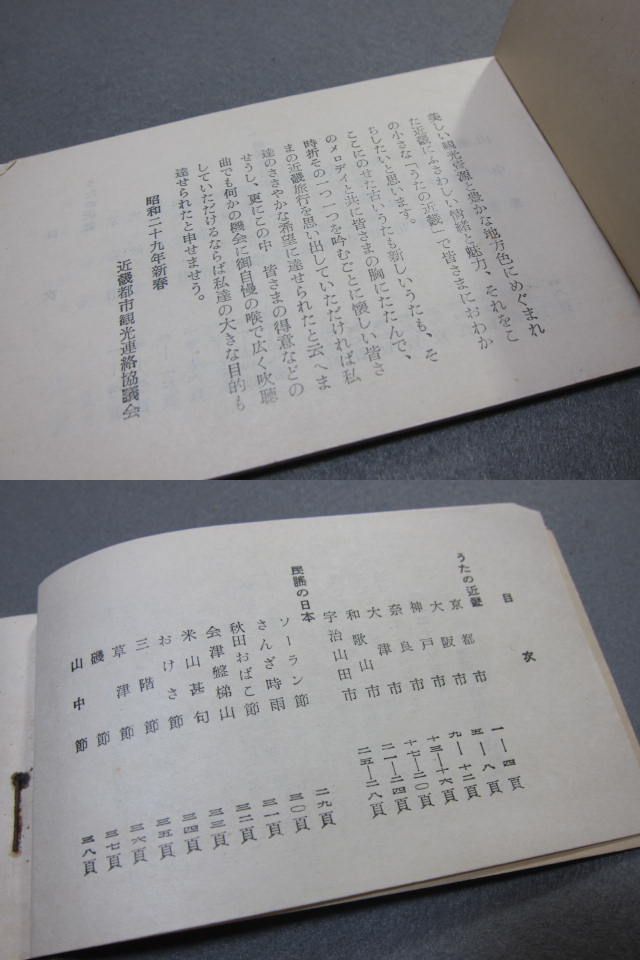 美しい観光資源と豊かな地方色にめぐまれ
た近畿にふさわしい情緒と魅力、それをこ
の小さな「うたの近畿」で皆さまにおわか
ちしたいと思います。
ここにのせた古いうたも新しいうたも、そ
のメロディと共に皆さまの胸にたたんで、
時折その一つ一つを吟むごとに懐しい皆さ
まの近畿旅行を思い出していただければ私
達のささやかな希望に達せられたと云へま
せうし、更にこの中　皆さまの得意などの
曲でも何かの機会に御自慢の喉で広く吹聴
していただけるならば私達の大きな目的も
達せられたと申せませう。
昭和二十九年新春
近畿都市観光連絡協議会
目次
うたの近畿
京都市 一―四頁
大阪市 五―八頁
神戸市 九―十二頁
奈良市 十三―十六頁
大津市 十七―二〇頁
和歌山市 二一―二四頁
宇治山田市 二五―二八頁
民謡の日本
ソーラン節 二九頁
さんさ時雨 三〇頁
秋田おばこ節 三一頁
会津磐梯山 三二頁
米山甚句 三三頁
おけさ節 三四頁
三階節 三五頁
草津節 三六頁
磯節 三七頁
山中節 三八頁